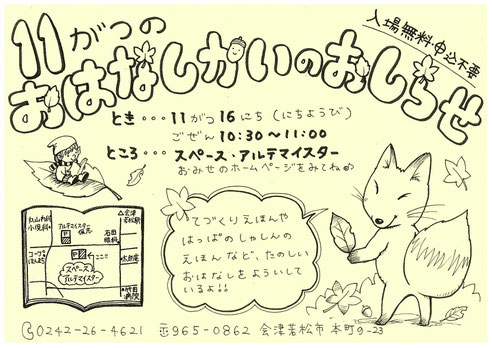 11がつの
おはなしかいのおしらせ
入場無料・申込不要
とき・・・11がつ16にち(にちようび)
ごぜん10:30~11:00
ところ・・・スペース・アルテマイスター
おみせのホームページをみてね
てづくりえほんや
はっぱのしゃしんの
えほんなど、たのしい
おはなしをよういして
いるよ!!
丸山内科
小児科
アルテマイスター
P
会津
若松駅
石田
眼科
P
ここ
スペース
アルテマイスター
竹田
病院
0242-26-4621 〒965-0862 会津若松市本町9-23